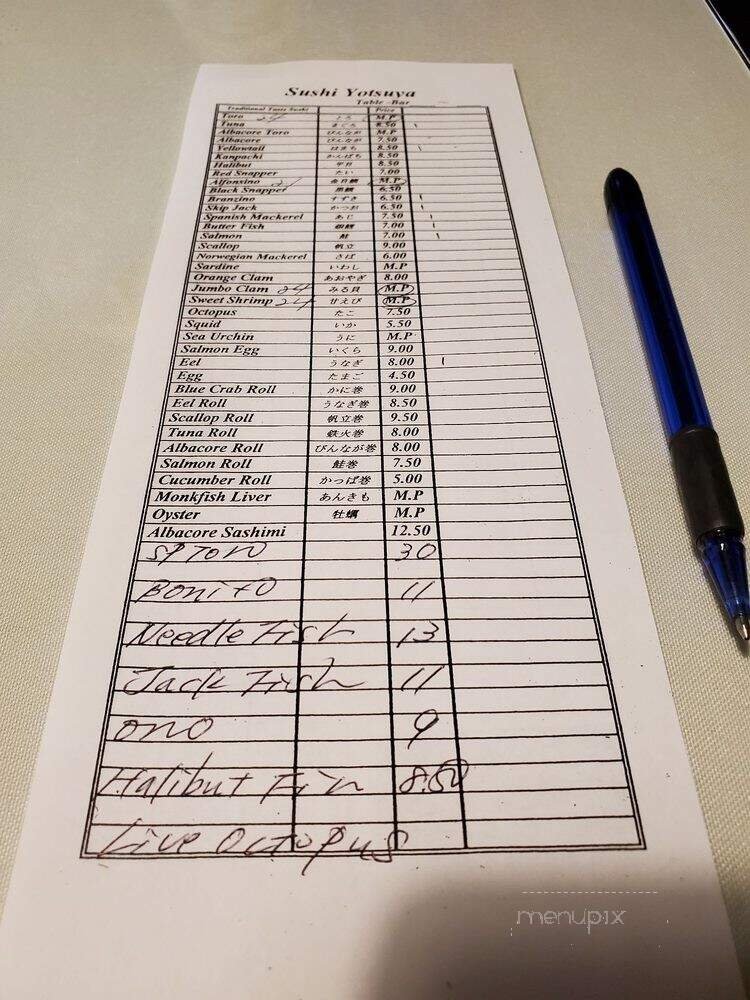 Sushi Yotsuya
Table -Bar
Traditional Taste Sushi Price
Toro 24 とろ M.P
Tuna まぐろ 8.50
Albacore Toro びんなが M.P
Albacore びんなが 7.50
Yellowtail はまち 8.50
Kanpachi かんぱち 8.50
Halibut 平目 8.50
Red Snapper たい 7.00
Alfonxino 金目鯛 M.P
Black Snapper 黒鯛 6.50
Branzino すずき 6.50
Skip Jack かつお 6.50
Spanish Mackerel あじ 7.50
Butter Fish 銀鱈 7.00
Salmon 鮭 7.00
Scallop 帆立 9.00
Norwegian Mackerel さば 6.00
Sardine いわし M.P
Orange Clam あおやぎ 8.00
Jumbo Clam 24 みる貝 M.P
Sweet Shrimp 24 甘えび M.P
Octopus たこ 7.50
Squid いか 5.50
Sea Urchin うに M.P
Salmon Egg いくら 9.00
Eel うなぎ 8.00
Egg たまご 4.50
Blue Crab Roll かに巻 9.00
Eel Roll うなぎ巻 8.50
Scallop Roll 帆立巻 9.50
Tuna Roll 鉄火巻 8.00
Albacore Roll びんなが巻 8.00
Salmon Roll 鮭巻 7.50
Cucumber Roll かっぱ巻 5.00
Monkfish Liver あんきも M.P
Oyster 牡蠣 M.P
Albacore Sashimi 12.50
30
Bonito 11
Needle Fish 13
Jack Fish 11
ono 9
Halibut Fin 8.50
Live Octopus
menupix